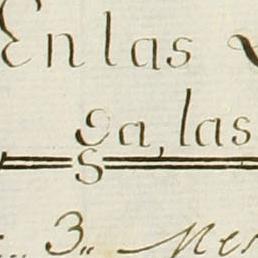 En las
ga, las
S
3,, Mes